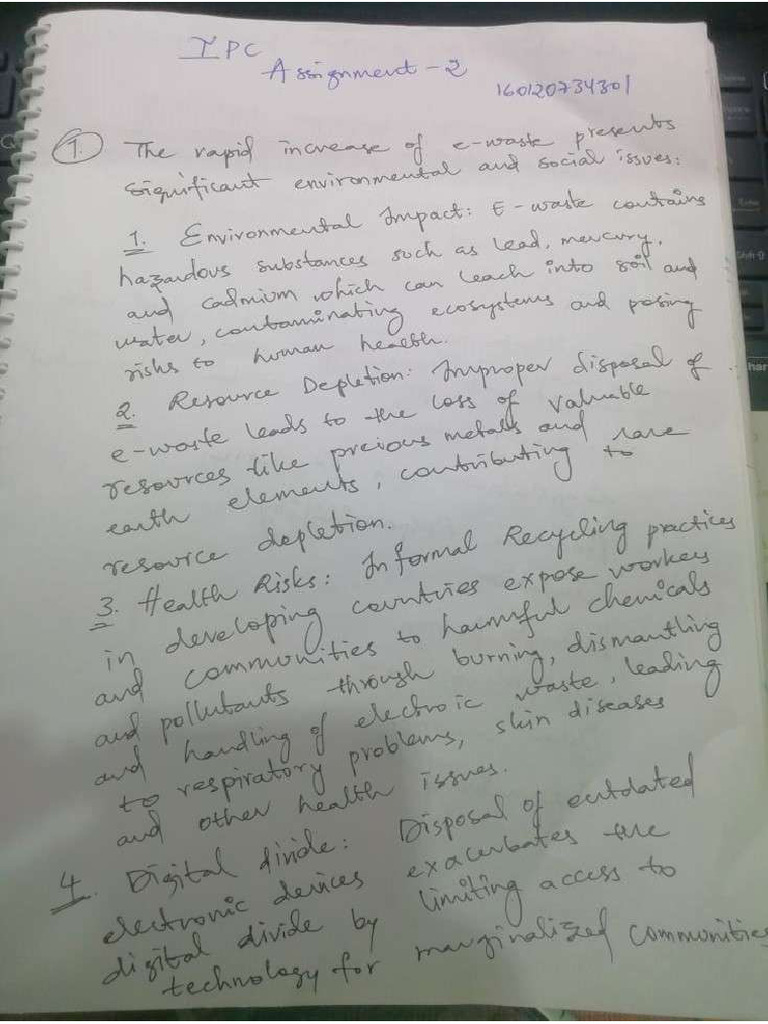 IPC
Assignment - 2
160120734301
1. The rapid increase of e-waste presents
significant environmental and social issues:
1. Environmental Impact: E-waste contains
hazardous substances such as lead, mercury,
and cadmium which can leach into soil and
water, contaminating ecosystems and posing
risks to human health.
2. Resource Depletion: Improper disposal of
e-waste leads to the loss of valuable
resources like precious metals and rare
earth elements, contributing to
resource depletion.
3. Health Risks: Informal Recycling practices
in developing countries expose workers
and communities to harmful chemicals
and pollutants through burning, dismantling
and handling of electroic waste, leading
to respiratory problems, skin diseases
and other health issues.
4. Digital divide: Disposal of outdated
electronic devices exacerbates the
digital divide by limiting access to
technology for marginalized communities